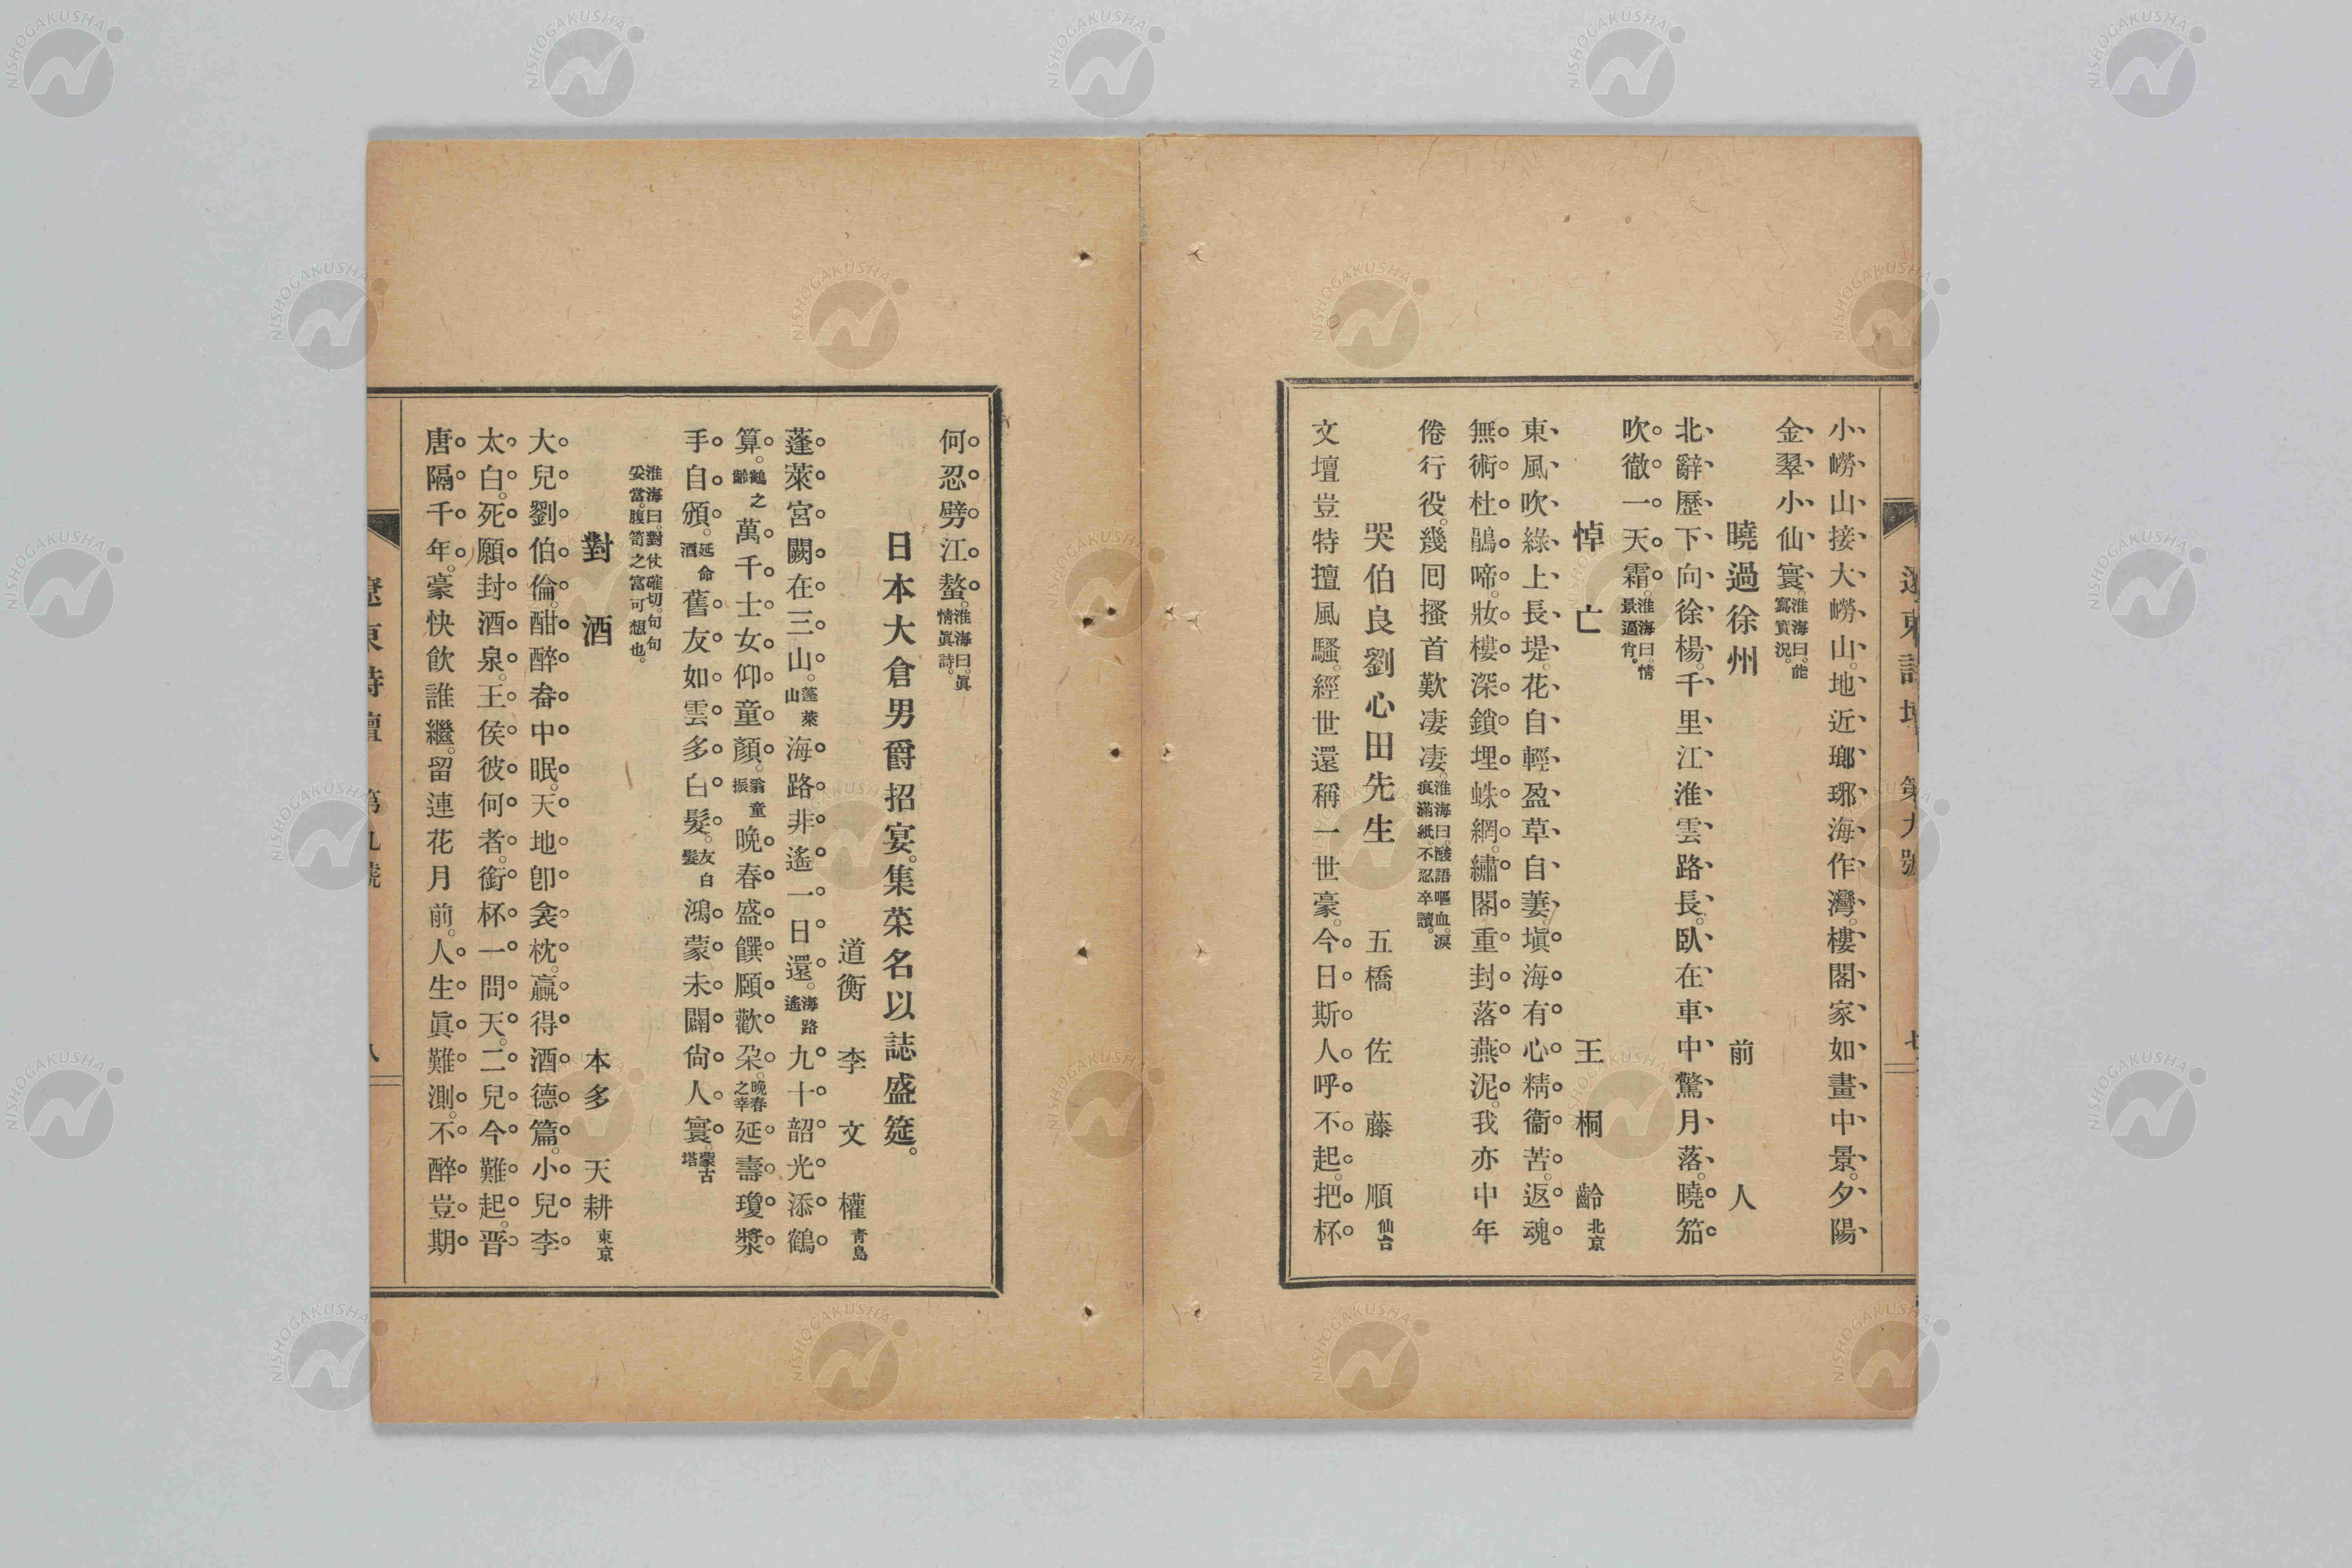 小嶗山接大嶗山。地近瑯琊海作灣。樓閣家如畫中景。夕陽
金翠小仙寰。淮海曰。能寫實况。
曉過徐州 前人
北辭歷下向徐楊。千里江淮雲路長。臥在車中驚月落。曉笳
吹徹一天霜。淮海曰。情景逼肯。
悼亡 王桐齡 北京
東風吹綠上長堤。花自輕盈草自萋。塡海有心精衞苦。返魂
無術杜鵑啼。妝樓深鎖埋蛛網。繡閣重封落燕泥。我亦中年
倦行役。幾回搔首歎凄凄。淮海曰。酸語嘔血。淚痕滿紙。不忍卒讀。
哭伯良劉心田先生 五橋 佐藤順 仙台
文壇豈特擅風騷。經世還稱一世豪。今日斯人呼不起。把杯
遼東詩壇 第九號 七
何忍劈江螯。淮海曰。眞情眞詩。
日本大倉男爵招宴。集菜名以誌盛筵。
道衡 李文權 青島
蓬萊宮闕在三山。蓬萊山海路非遙一日還。海路遙九十韶光添鶴
算。鶴之齡萬千士女仰童顏。翁童振晚春盛饌頤歡朶。晚春之幸延壽瓊漿
手自頒。延命酒舊友如雲多白髮。友白髮鴻蒙未闢尙人寰。蒙古塔
淮海曰。對仗確切。句句妥當。腹笥之富可想也。
對酒 本多天耕 東京
大兒劉伯倫。酣醉畚中眠。天地卽衾枕。贏得酒德篇。小兒李
太白。死願封酒泉。王侯彼何者。銜杯一問天。二兒今難起。晋
唐隔千年。豪快飮誰繼。留連花月前。人生眞難測。不醉豈期
遼東詩壇 第九號 八
NISHOGAKUSHA